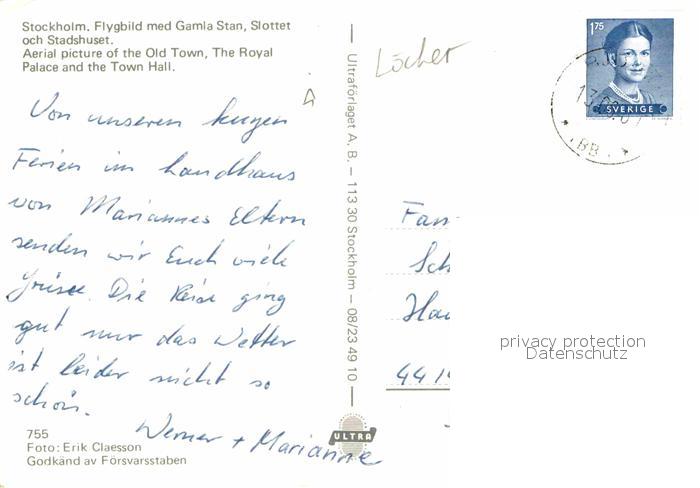 Stockholm. Flygbild med Gamla Stan, Slottet
och Stadshuset.
Aerial picture of the Old Town, The Royal
Palace and the Town Hall.
Von unseren kurzen
Ferien im Landhaus
von Mariannes Eltern
senden wir Euch viele
Grüsse. Die Reise ging
gut nur das Wetter
ist leider nicht so
schön.
Werner + Marianne
755
Foto: Erik Claesson
Godkänd av Försvarsstaben
Ultraförlaget A. B. – 113 30 Stockholm – 08/23 49 10
ULTRA
Löcher
1.75
SVERIGE
BB
Fam
Sch
Ha
44 1
privacy protection
Datenschutz